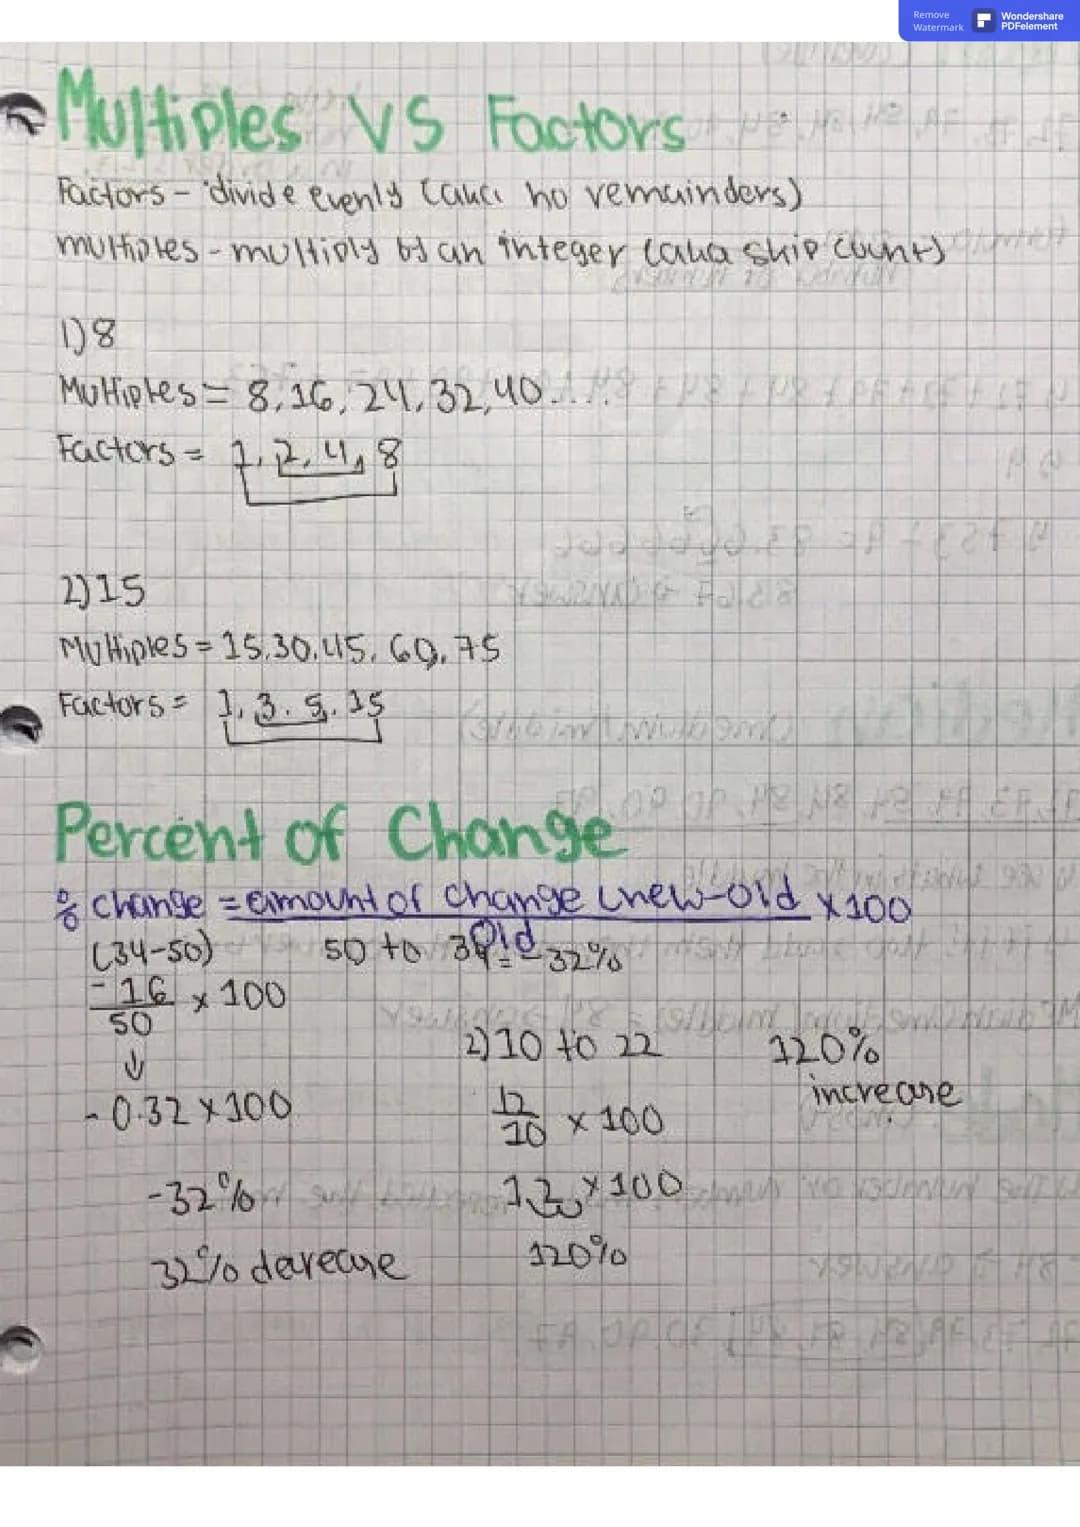 Remove Watermark Wondershare PDFelement
Multiples VS Factors
Factors - divide evenly (aka no remainders)
multiples - multiply by an integer (aka skip count)
1) 8
Multiples = 8, 16, 24, 32, 40....
Factors = 1, 2, 4, 8
2) 15
Multiples = 15, 30, 45, 60, 75
Factors = 1, 3, 5, 15
Percent of Change
% change = amount of change (new-old x 100
Old
(34-50) 50 to 34 = -32%
-16 x 100
50
↓
-0.32 x 100
-32%
32% decrease
2) 10 to 22 120%
increase
12 x 100
10
1.2 x 100
120%